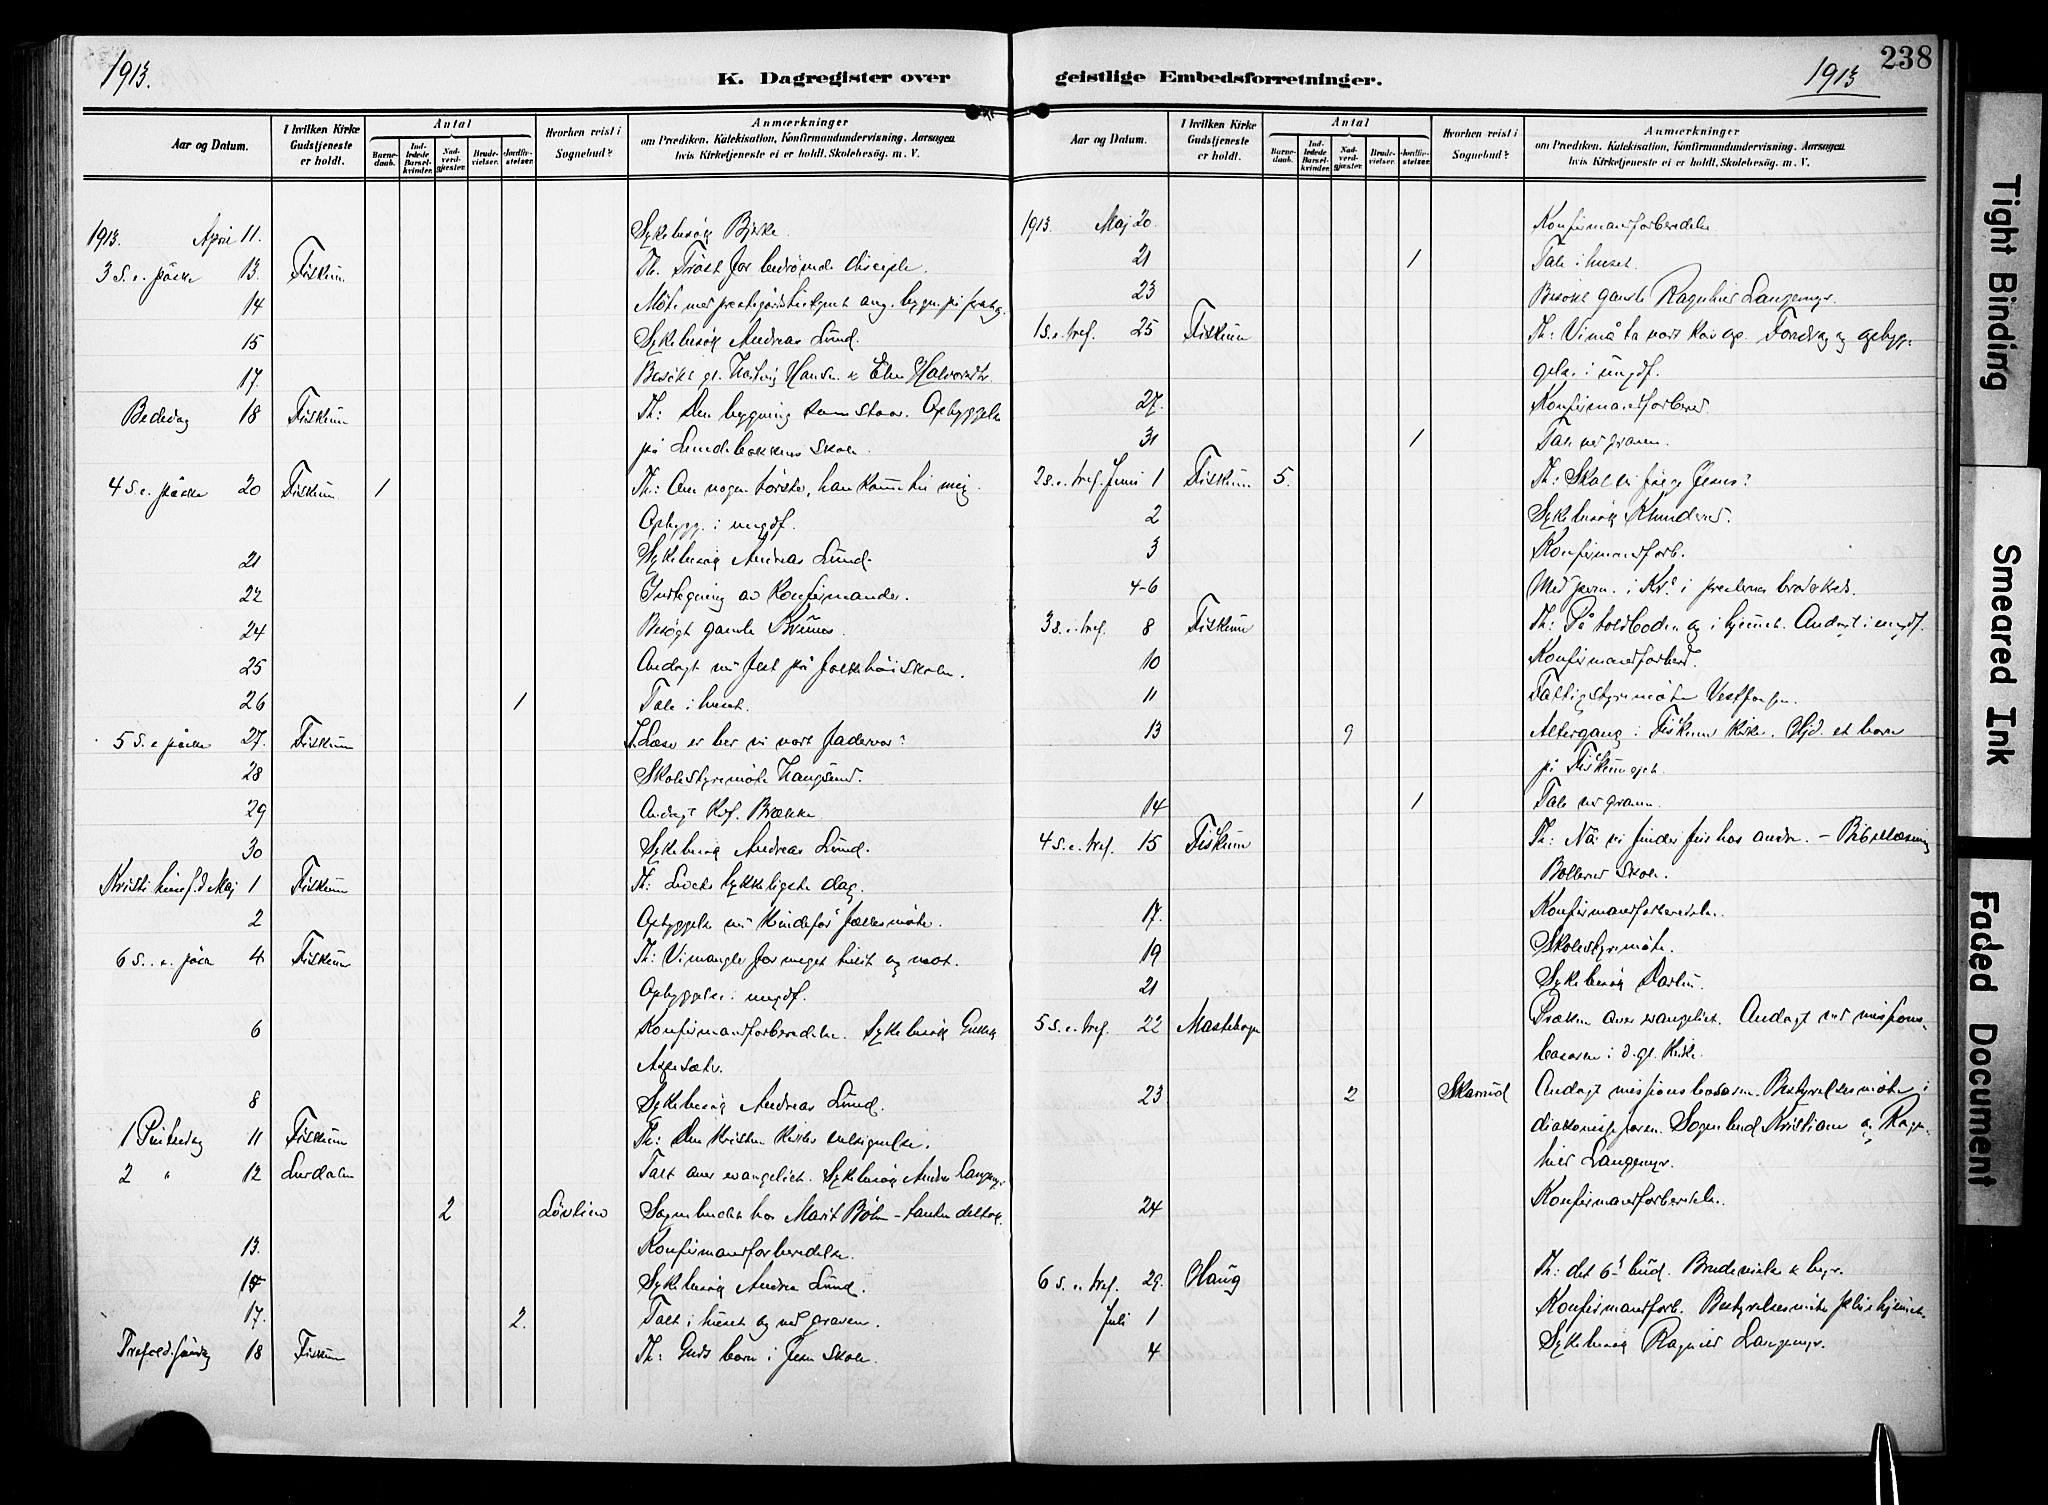 1913.
K. Dagregister over
Aar og Datum.
I hvilken Kirke Gudstjeneste er holdt.
Antal
Barnedaab.
Indledede Barselkvinder.
Nadverdgjæster.
Brudevielser.
Jordfæstelser.
Hvorhen reist i Sognebud?
Anmærkninger
om Prædiken, Katekisation, Konfirmandundervisning, Aarsagen
hvis Kirketjeneste ei er holdt, Skolebesøg, m. V.
1913. April 11. Sykebesøg Bjerke.
3 S. e. påske 13. Fiskum Th. Trøst for bedrøvede disciple.
14 Møte med
15 Sykebesøg Andreas Lund.
17. Besøkt gl. Hansen
Bededag 18 Fiskum Th: Den bygning som staar. Opbyggelse
på Lundebakkens Skole.
4 S. e. påske 20 Fiskum 1 Th: Om nogen tørster, han komme til mig.
Opbygg. i ungdf.
21 Sykebesøg Andreas Lund.
22 Indtegning av Konfirmander.
24 Besøgt gamle
25 Andagt ved fest på folkehøiskolen.
26 1 Tale i huset.
5 S. e påske 27. Fiskum
28 Skolestyremøte
29 Andagt
30 Sykebesøg Andreas Lund.
Kristi himf.d Maj 1 Fiskum Th: Livets lykkeligste dag.
2 Opbyggelse ved Kindefor fællesmøte.
6 S. e. påske 4 Fiskum Th: Vi mangler for meget tillit og mot.
Opbyggelse i ungdf.
6 Konfirmandforberedelse. Sykebesøg
8 Sykebesøg Andreas Lund.
1 Pintsedag 11 Fiskum Th: Den Kristne Kirkes velsignelse.
2 " 12 Lurdalen Talt over evangeliet. Sykebesøg
2 Løvlien Sognebudet hos Marit Bøhn – tanten deltog.
13. Konfirmandforberedelse.
Sykebesøg Andreas Lund.
17. 2. Talt i huset og ved graven.
Trefold. søndag 18 Fiskum Th: Guds barn i Jesu Skole.
geistlige Embedsforretninger.
1913
238
Aar og Datum.
I hvilken Kirke Gudstjeneste er holdt.
Antal
Barnedaab.
Indledede Barselkvinder.
Nadverdgjæster.
Brudevielser.
Jordfæstelser.
Hvorhen reist i Sognebud?
Anmærkninger
om Prædiken, Katekisation, Konfirmandundervisning, Aarsagen
hvis Kirketjeneste ei er holdt, Skolebesøg, m. V.
1913. Maj 20. Konfirmandforberedelse
21 1 Tale i huset.
23 Besøkt gamle Langemyr.
1 S. e. tref. 25 Fiskum Th: Vi må ta vort kors op. Foredrag og opbyg-
gelse i ungdf.
27. Konfirmandforbered.
31 1 Tale ved graven.
2 S. e. tref. Juni 1 Fiskum 5. Th: Skal vi følge Jesus?
2 Sykebesøg
3 Konfirmandforb.
4-6
3 S. e. tref. 8 Fiskum Th: På toldboden og i hjemmet. Andagt i ungdf.
10 Konfirmandforbered.
11 Fattigstyremøte Vestfossen.
13 9 Altergang i Fiskum Kirke. Hjd. et barn
på
14 1 Tale ved graven.
4 S. e. tref. 15 Fiskum Th: Når vi finder feil hos andre. – Bibellæsning
Bollerud Skole.
17. Konfirmandforberedelse.
19 Skolestyremøte.
21 Sykebesøg
5 S. e. tref. 22 Mastebogen Præken over evangeliet. Andagt ved missions-
basaren i d. gl. Kirke.
23 2 Skarrud Andagt missionsbasaren. Bestyrelsesmøte i
diakonisseforen. Sognebud Kristiane og Ragn-
hild Langemyr.
24 Konfirmandforberedelse.
6 S. e. tref. 29. Haug Th: det 6te bud.
Juli 1 Konfirmandforb. Bestyrelsesmøte pleiehjemmet.
4 Sykebesøg Ragnhild Langemyr.
Tight Binding
Smeared Ink
Faded Document